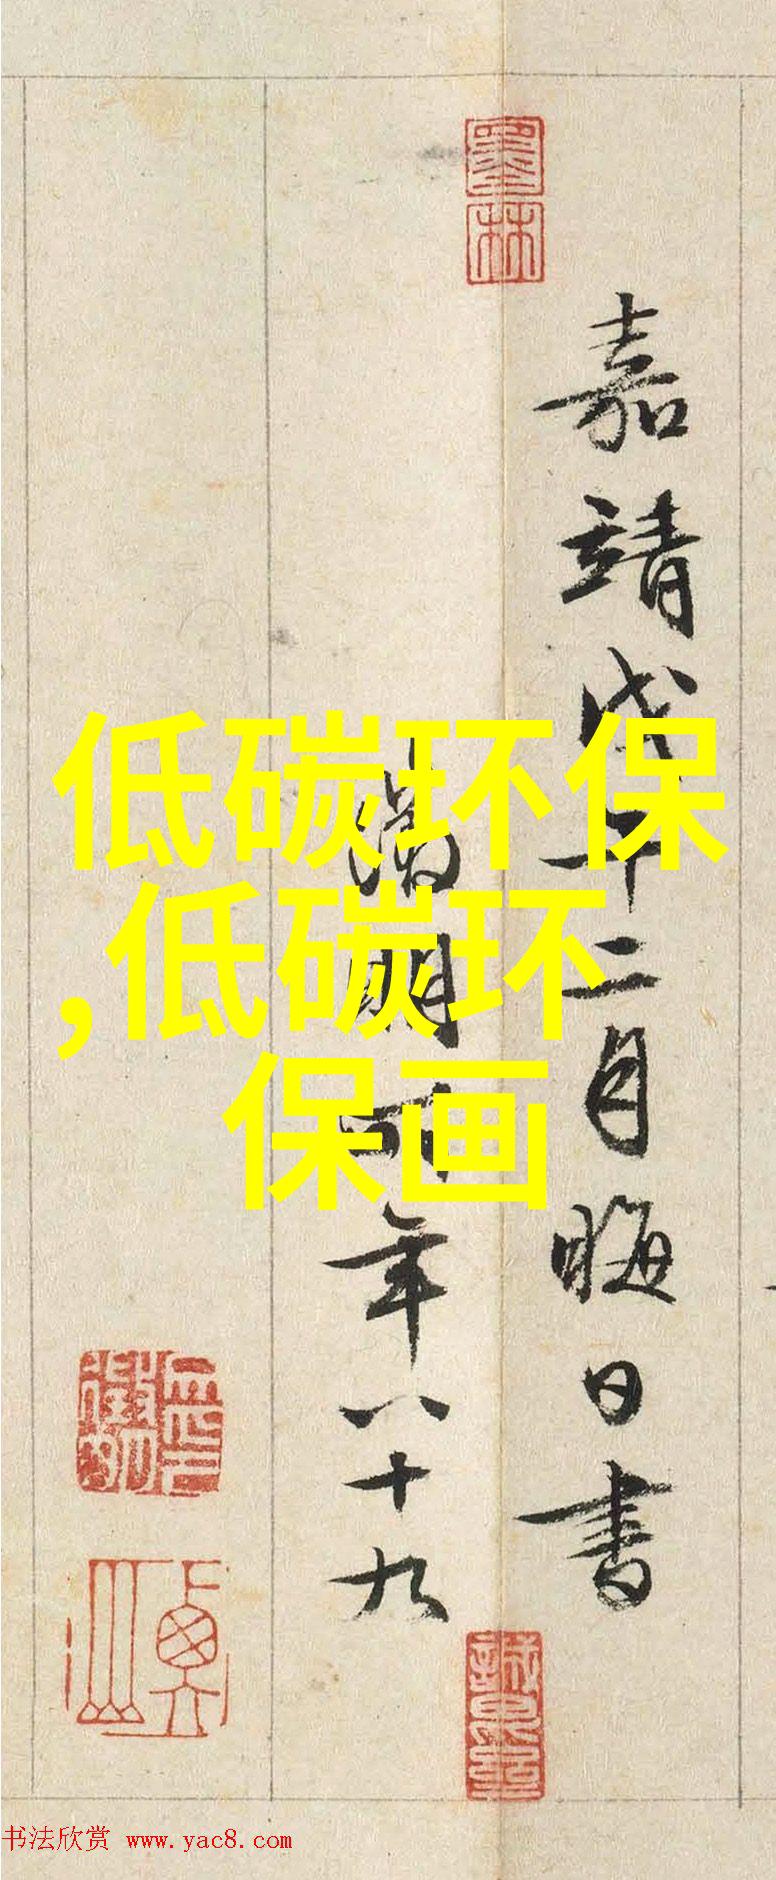 墨林
嘉靖戊午二月晦日書
徵明時年八十九
低碳环保
,低碳环
保画
书法欣赏 www.yac8.com